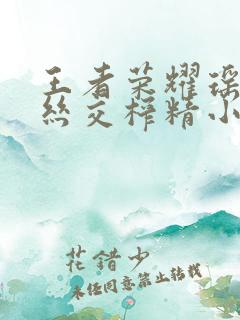 王者荣耀瑶
丝交榨精小
花错少
未经同意禁止转载